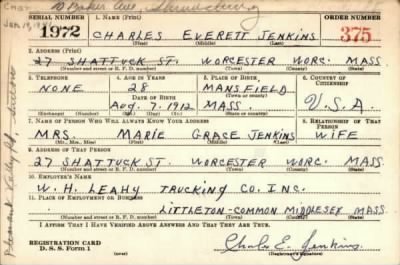 Baker Ave, Shrewsbury
SERIAL NUMBER
1. NAME (Print)
ORDER NUMBER
1972
CHARLES EVERETT JENKINS
375
(First) (Middle) (Last)
2. ADDRESS (Print)
27 SHATTUCK ST. WORCESTER WORC. MASS
(Number and street or R. F. D. number) (Town) (County) (State)
3. TELEPHONE
4. AGE IN YEARS
5. PLACE OF BIRTH
6. COUNTRY OF CITIZENSHIP
NONE
28
MANSFIELD
DATE OF BIRTH
(Town or county)
U.S.A.
AUG. 7. 1912
MASS.
(Exchange) (Number)
(Mo.) (Day) (Yr.)
(State or country)
7. NAME OF PERSON WHO WILL ALWAYS KNOW YOUR ADDRESS
8. RELATIONSHIP OF THAT PERSON
MRS. MARIE GRACE JENKINS WIFE
(Mr., Mrs., Miss) (First) (Middle) (Last)
9. ADDRESS OF THAT PERSON
27 SHATTUCK ST. WORCESTER WORC. MASS
(Number and street or R. F. D. number) (Town) (County) (State)
10. EMPLOYER'S NAME
W. H. LEAHY TRUCKING CO. INC.
11. PLACE OF EMPLOYMENT OR BUSINESS
LITTLETON-COMMON MIDDLESEX MASS
(Number and street or R. F. D. number) (Town) (County) (State)
I AFFIRM THAT I HAVE VERIFIED ABOVE ANSWERS AND THAT THEY ARE TRUE.
REGISTRATION CARD
D. S. S. Form 1
Charles E. Jenkins
(Registrant's signature)
Pleasant Valley Rd. Sutton